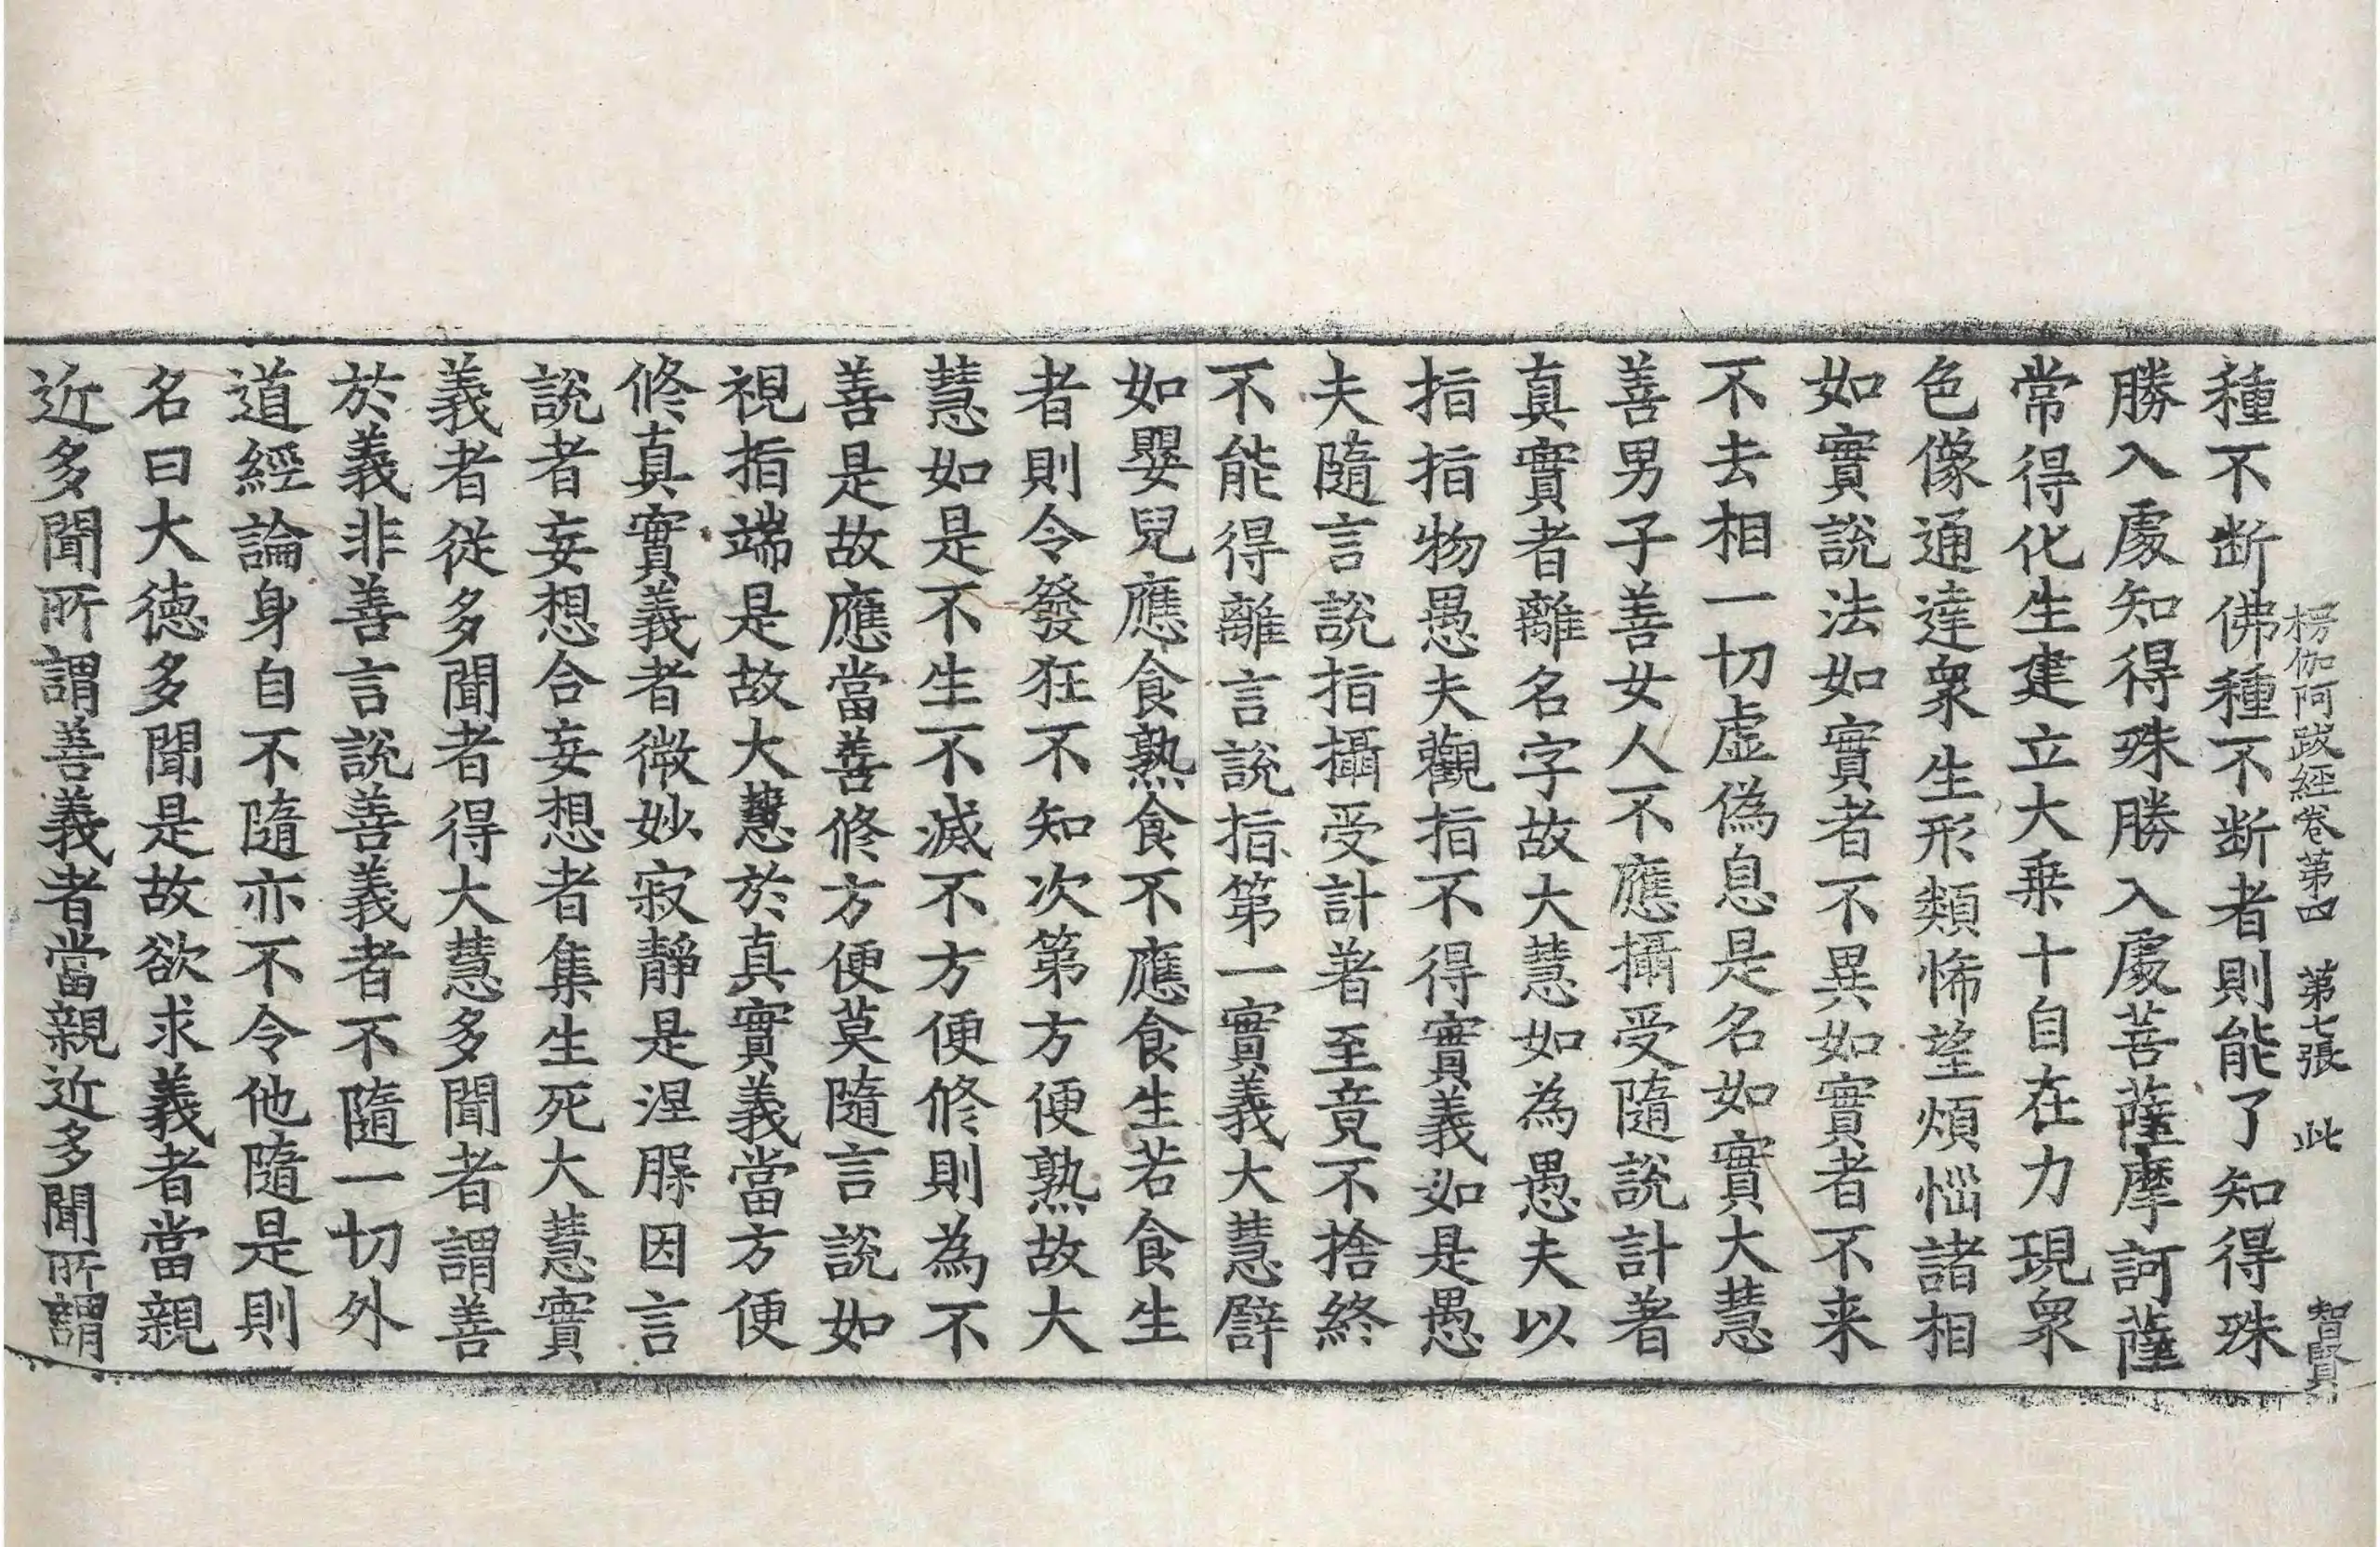 楞伽阿跋經卷第四 第七張 此 智賢
種不断佛種不断者則能了知得殊
勝入處知得殊勝入處菩薩摩訶薩
常得化生建立大乗十自在力現衆
色像通達衆生形類悕望煩惱諸相
如實說法如實者不異如實者不来
不去相一切虚偽息是名如實大慧
善男子善女人不應攝受隨說計著
真實者離名字故大慧如為愚夫以
指指物愚夫觀指不得實義如是愚
夫隨言說指攝受計著至竟不捨終
不能得離言說指第一實義大慧譬
如嬰兒應食熟食不應食生若食生
者則令發狂不知次第方便熟故大
慧如是不生不滅不方便修則為不
善是故應當善修方便莫隨言說如
視指端是故大慧於真實義當方便
修真實義者微妙寂靜是涅槃因言
說者妄想合妄想者集生死大慧實
義者從多聞者得大慧多聞者謂善
於義非善言說善義者不隨一切外
道經論身自不隨亦不令他隨是則
名曰大德多聞是故欲求義者當親
近多聞所謂善義者當親近多聞所謂